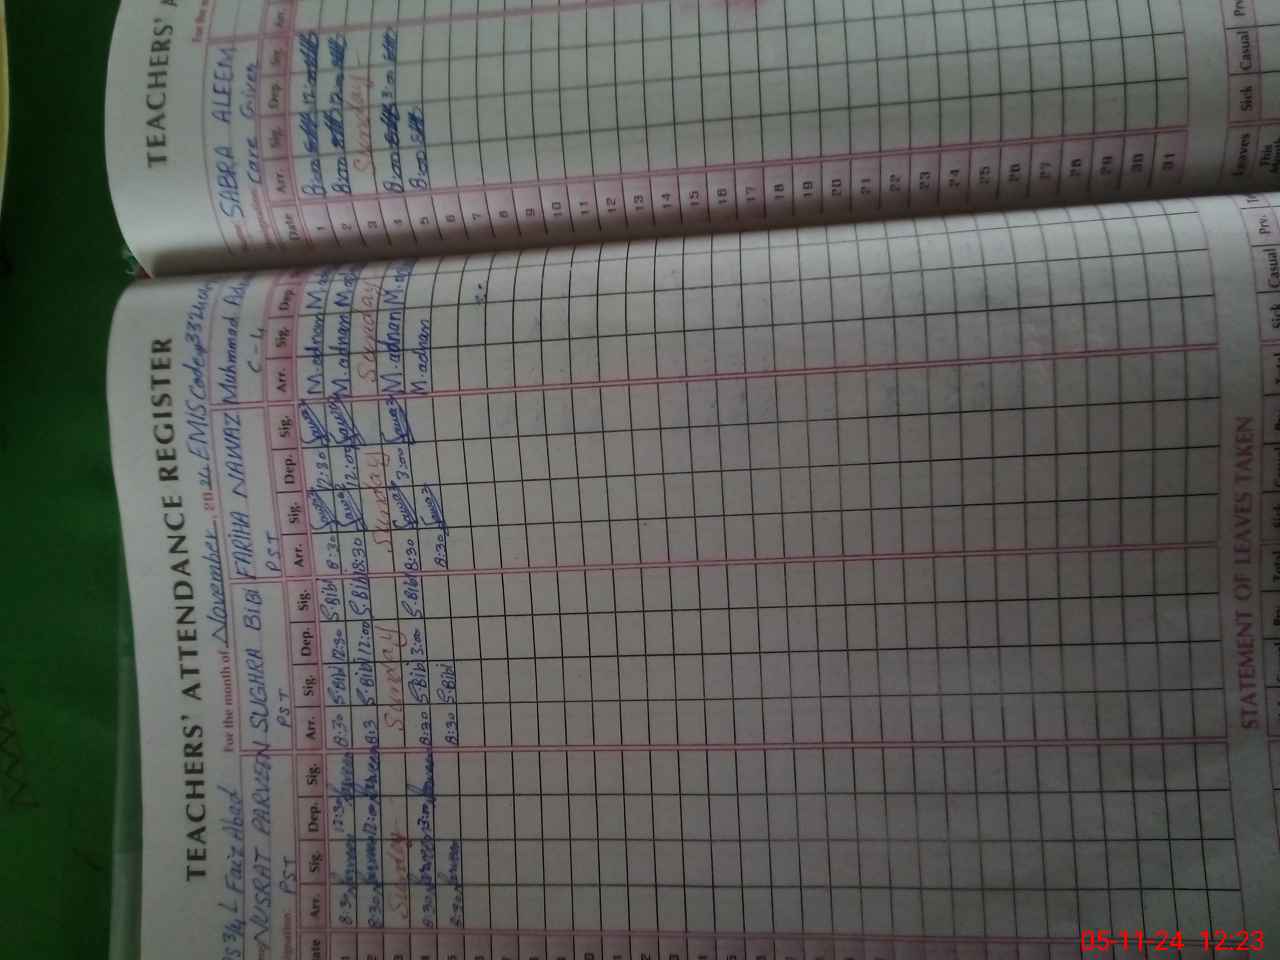 TEACHERS' ATTENDANCE REGISTER
Faiz Abad For the month of November 2024 EMIS Code
NUSRAT PARVEEN SUGHRA BIBI FARIHA NAWAZ Muhmmad
PST PST PST C-4
Date Arr. Sig. Dep. Sig. Arr. Sig. Dep. Sig. Arr. Sig. Dep. Sig. Arr. Sig. Dep.
1 8:30 Parveen 12:30 Parveen 8:30 S.Bibi 12:30 S.Bibi 8:30 Fawaz 12:30 Fawaz M.adnan
2 8:30 Parveen 12:00 Parveen 8:3 S.Bibi 12:00 S.Bibi 8:30 Fawaz 12:00 Fawaz M.adnan
3 Sunday Sunday Sunday Sunday
4 8:30 Parveen 3:00 Parveen 8:30 S.Bibi 3:00 S.Bibi 8:30 Fawaz 3:00 Fawaz M.adnan
5 8:30 Parveen 8:30 S.Bibi 8:30 Fawaz M.adnan
STATEMENT OF LEAVES TAKEN
Sick Casual Prv.
TEACHERS' A
For the
SABRA ALEEM
Care Giver
Date Arr. Sig. Dep. Sig. Arr.
1 8:00 12:00
2 8:00 12:00
3 Sunday
4 8:00 3:00
5 8:00
6
7
8
9
10
11
12
13
14
15
16
17
18
19
20
21
22
23
24
25
26
27
28
29
30
31
Leaves Sick Casual
This
05-11-24 12:23